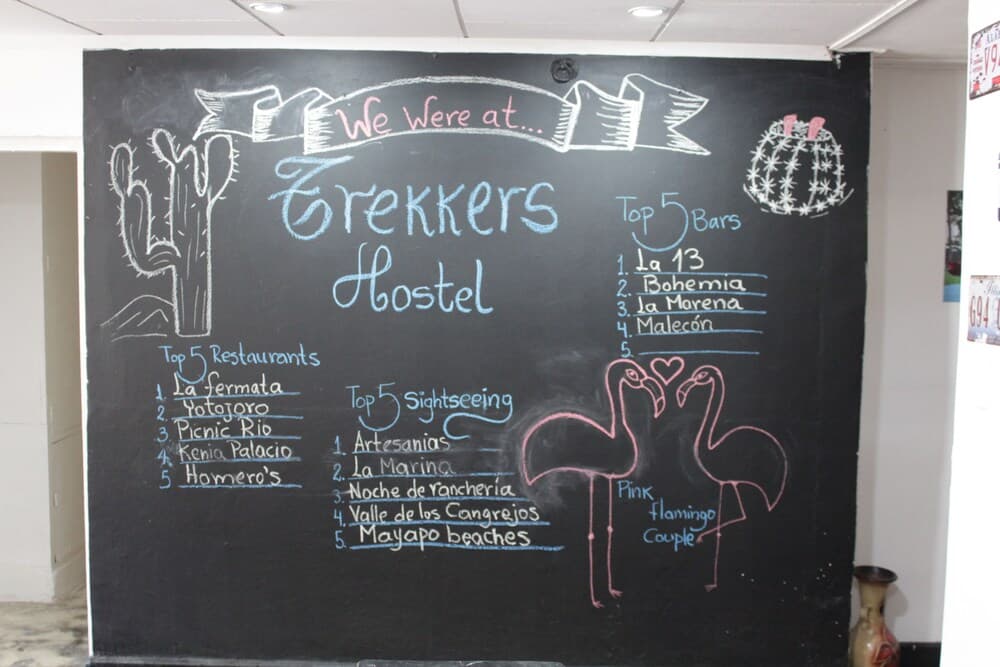 We Were at...
Trekkers
Hostel
Top 5 Bars
1. La 13
2. Bohemia
3. La Morena
4. Malecón
5.
Top 5 Restaurants
1. La fermata
2. Yotojoro
3. Picnic Rio
4. Kenia Palacio
5 Homero's
Top 5 Sightseeing
1. Artesanias
2. La Marina
3. Noche de ranchería
4. Valle de los Cangrejos
5. Mayapo beaches
Pink
flamingo
Couple